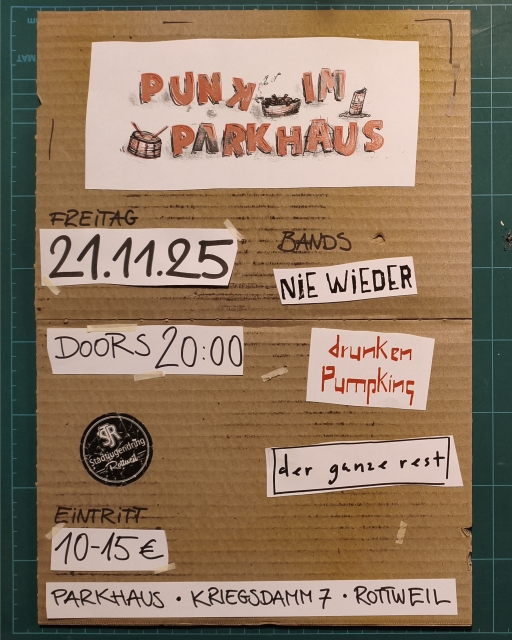 PUNK IM
PARKHAUS
FREITAG
21.11.25
BANDS
NIE WIEDER
DOORS 20:00
drunken
Pumpking
SJR
Stadtjugendring
Rottweil
der ganze rest
EINTRITT
10-15 €
PARKHAUS · KRIEGSDAMM 7 · ROTTWEIL